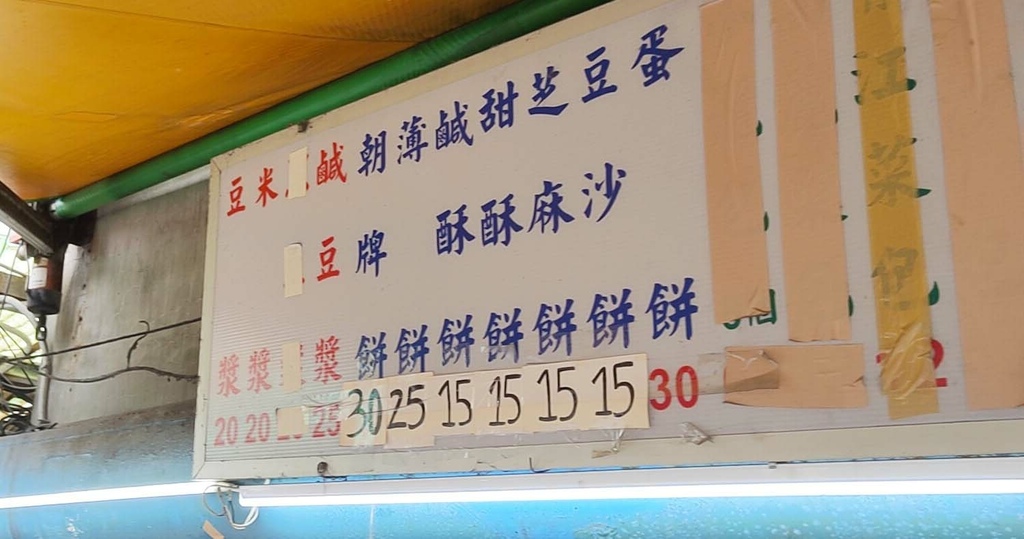 豆漿 20
米漿 20
鹹豆漿 25
朝牌餅 30
薄餅 25
鹹酥餅 15
甜酥餅 15
芝麻餅 15
豆沙餅 15
蛋餅 30
個
菜
2